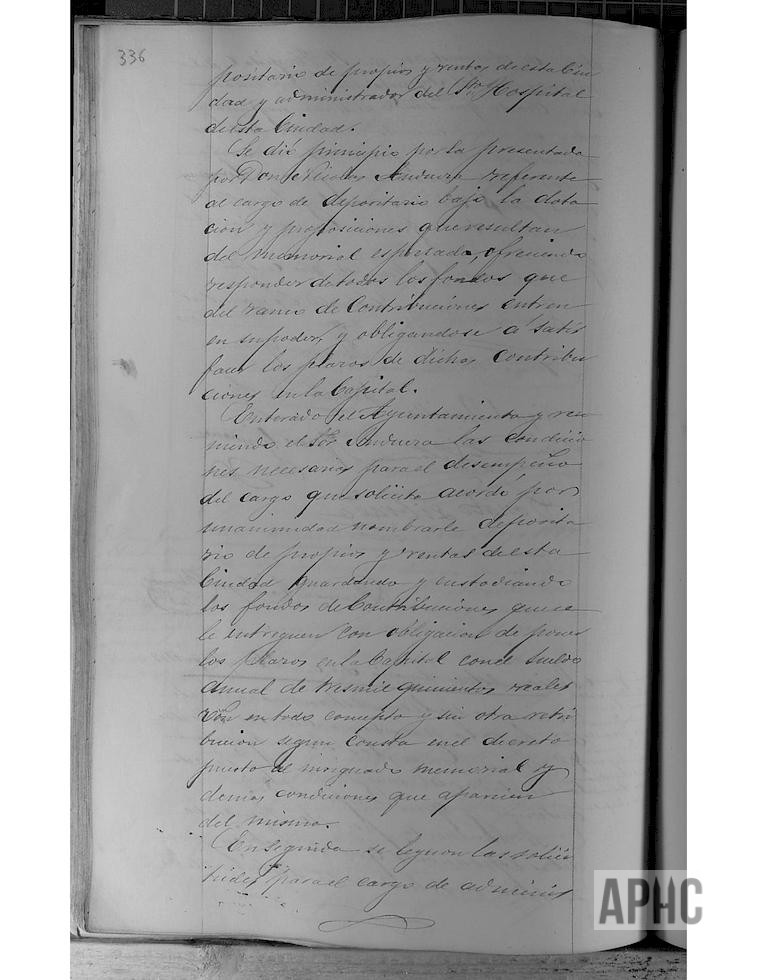 336
positario de propios y rentas de esta Ciu
dad y administrador del Sto Hospital
de esta Ciudad.
Se dió principio por la presentada
por Don Nicolas Anduera referente
al cargo de depositario bajo la dota
cion y proposiciones que resultan
del memorial espresado, ofreciendo
responder de todos los fondos que
del ramo de Contribuciones entren
en su poder, y obligandose á satis
facer los plazos de dichas contribu
ciones en la Capital.
Enterado el Ayuntamiento y reu
niendo el Sor Anduera las condicio
nes necesarias para el desempeño
del cargo que solicita acordó por
unanimidad nombrarle deposita
rio de propios y rentas de esta
Ciudad guardando y custodiando
los fondos de Contribuciones que se
le entreguen con obligacion de poner
los plazos en la Capital con el sueldo
anual de tres mil quinientos reales
von en todo concepto y sin otra retri
bucion segun consta en el decreto
puesto al insiguado memorial y
demas condiciones que aparecen
del mismo.
En seguida se leyeron las solici
tudes para el cargo de adminis
APHC